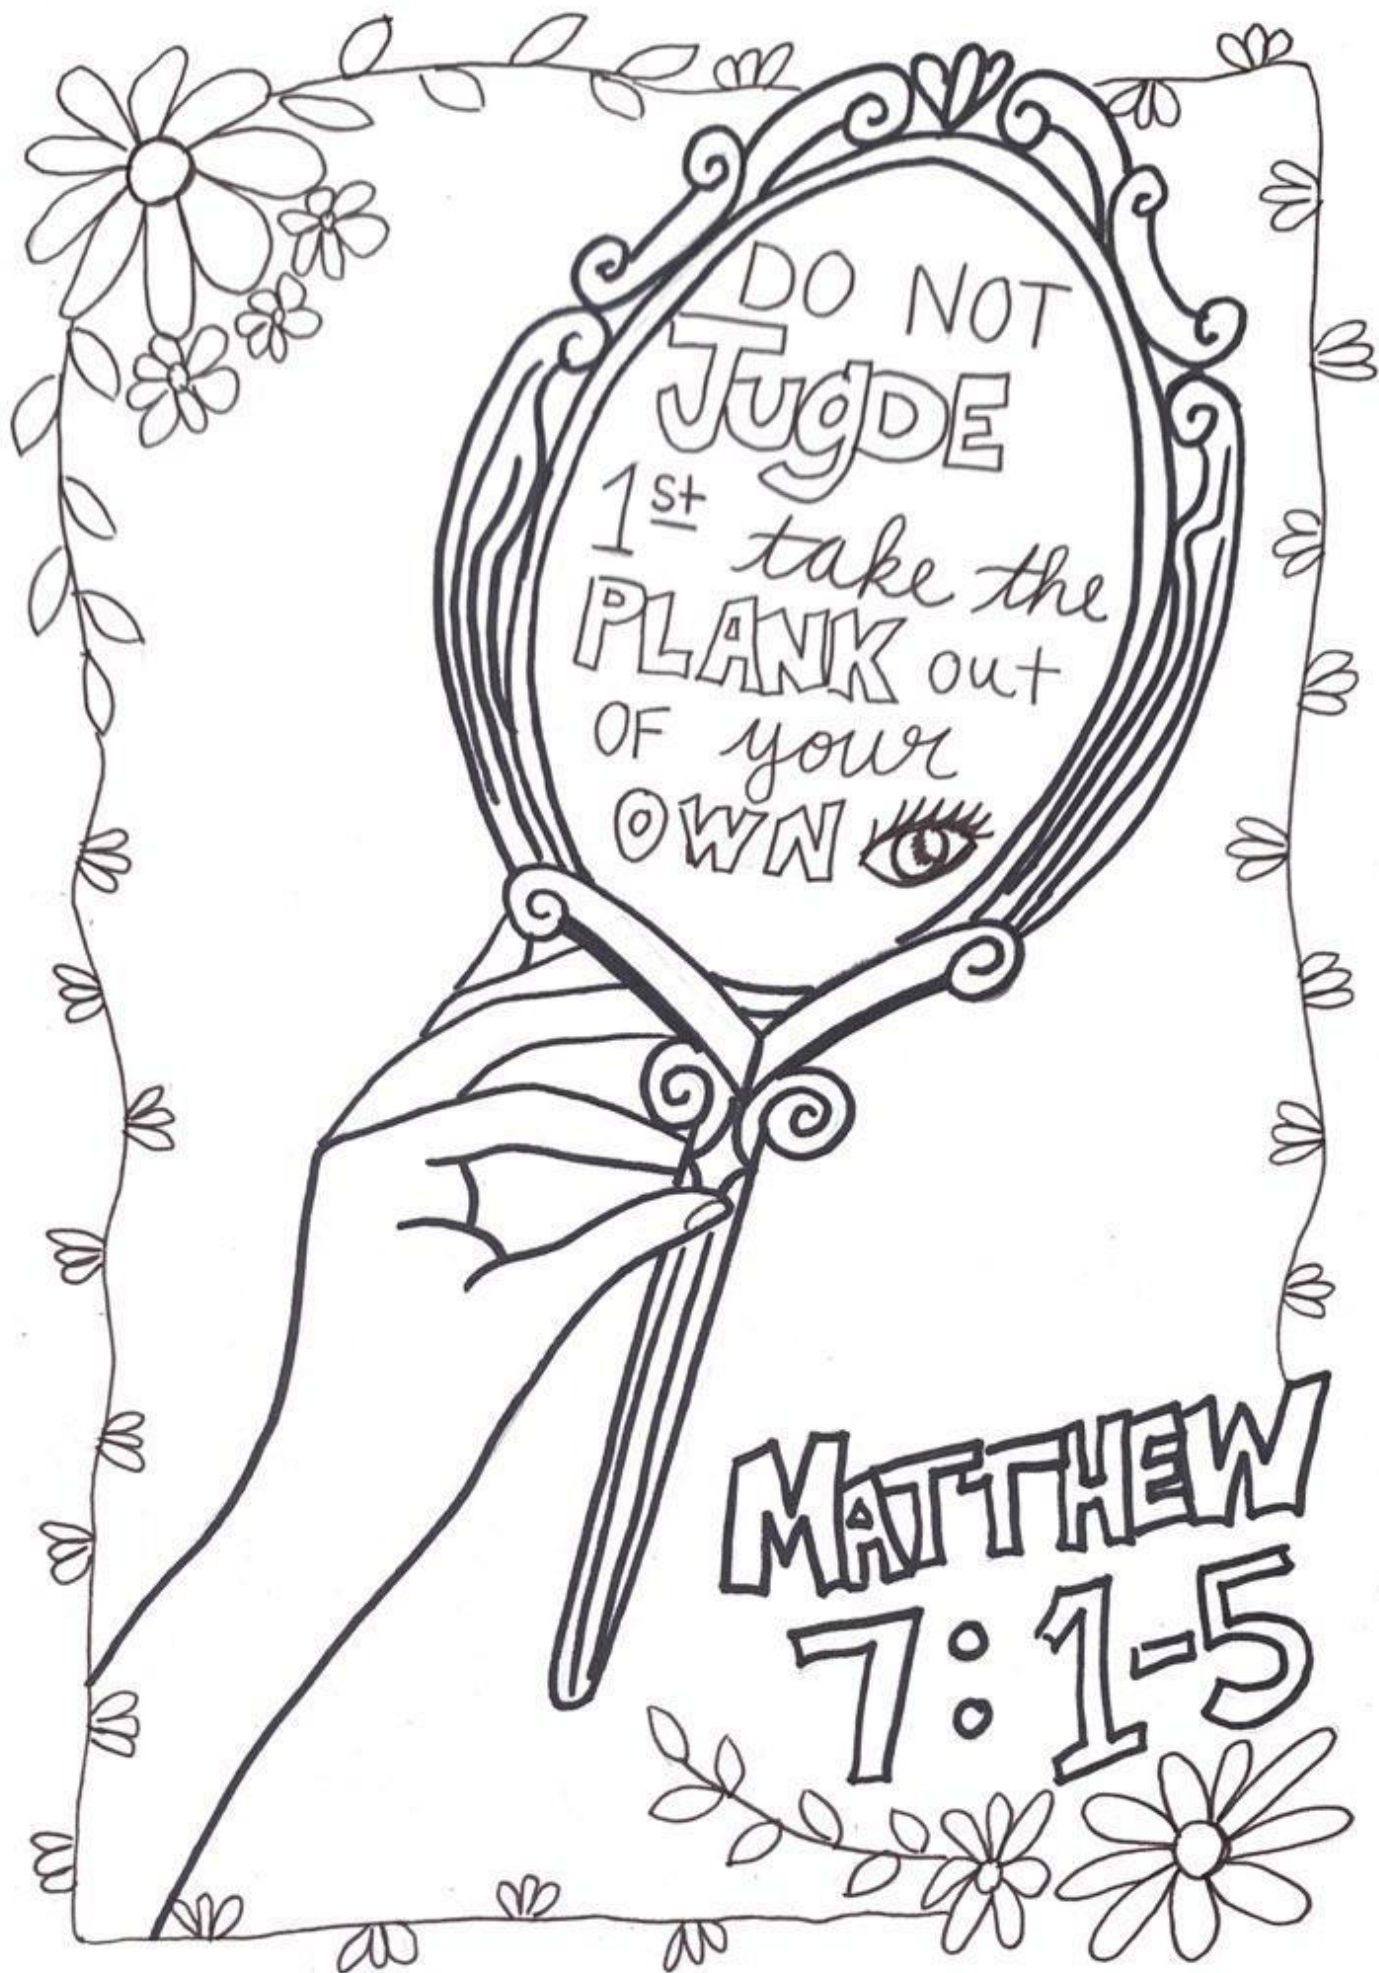 DO NOT
JugDE
1st take the
PLANK out
OF your
OWN
MATTHEW
7:1-5